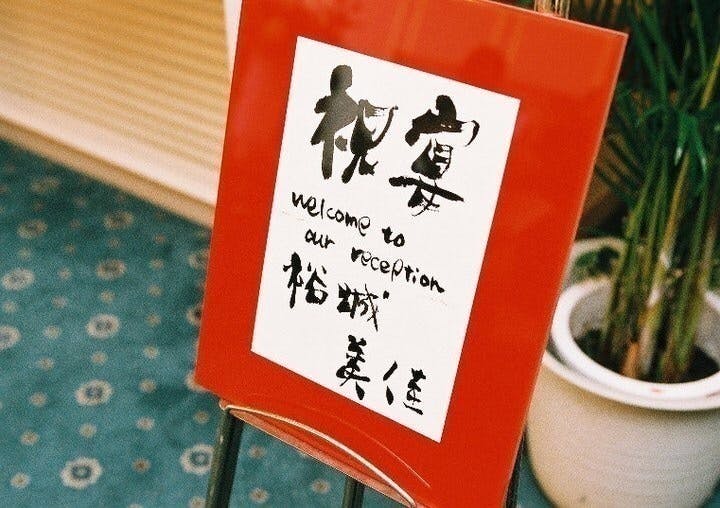 祝宴
welcome to
our reception
裕城
美佳